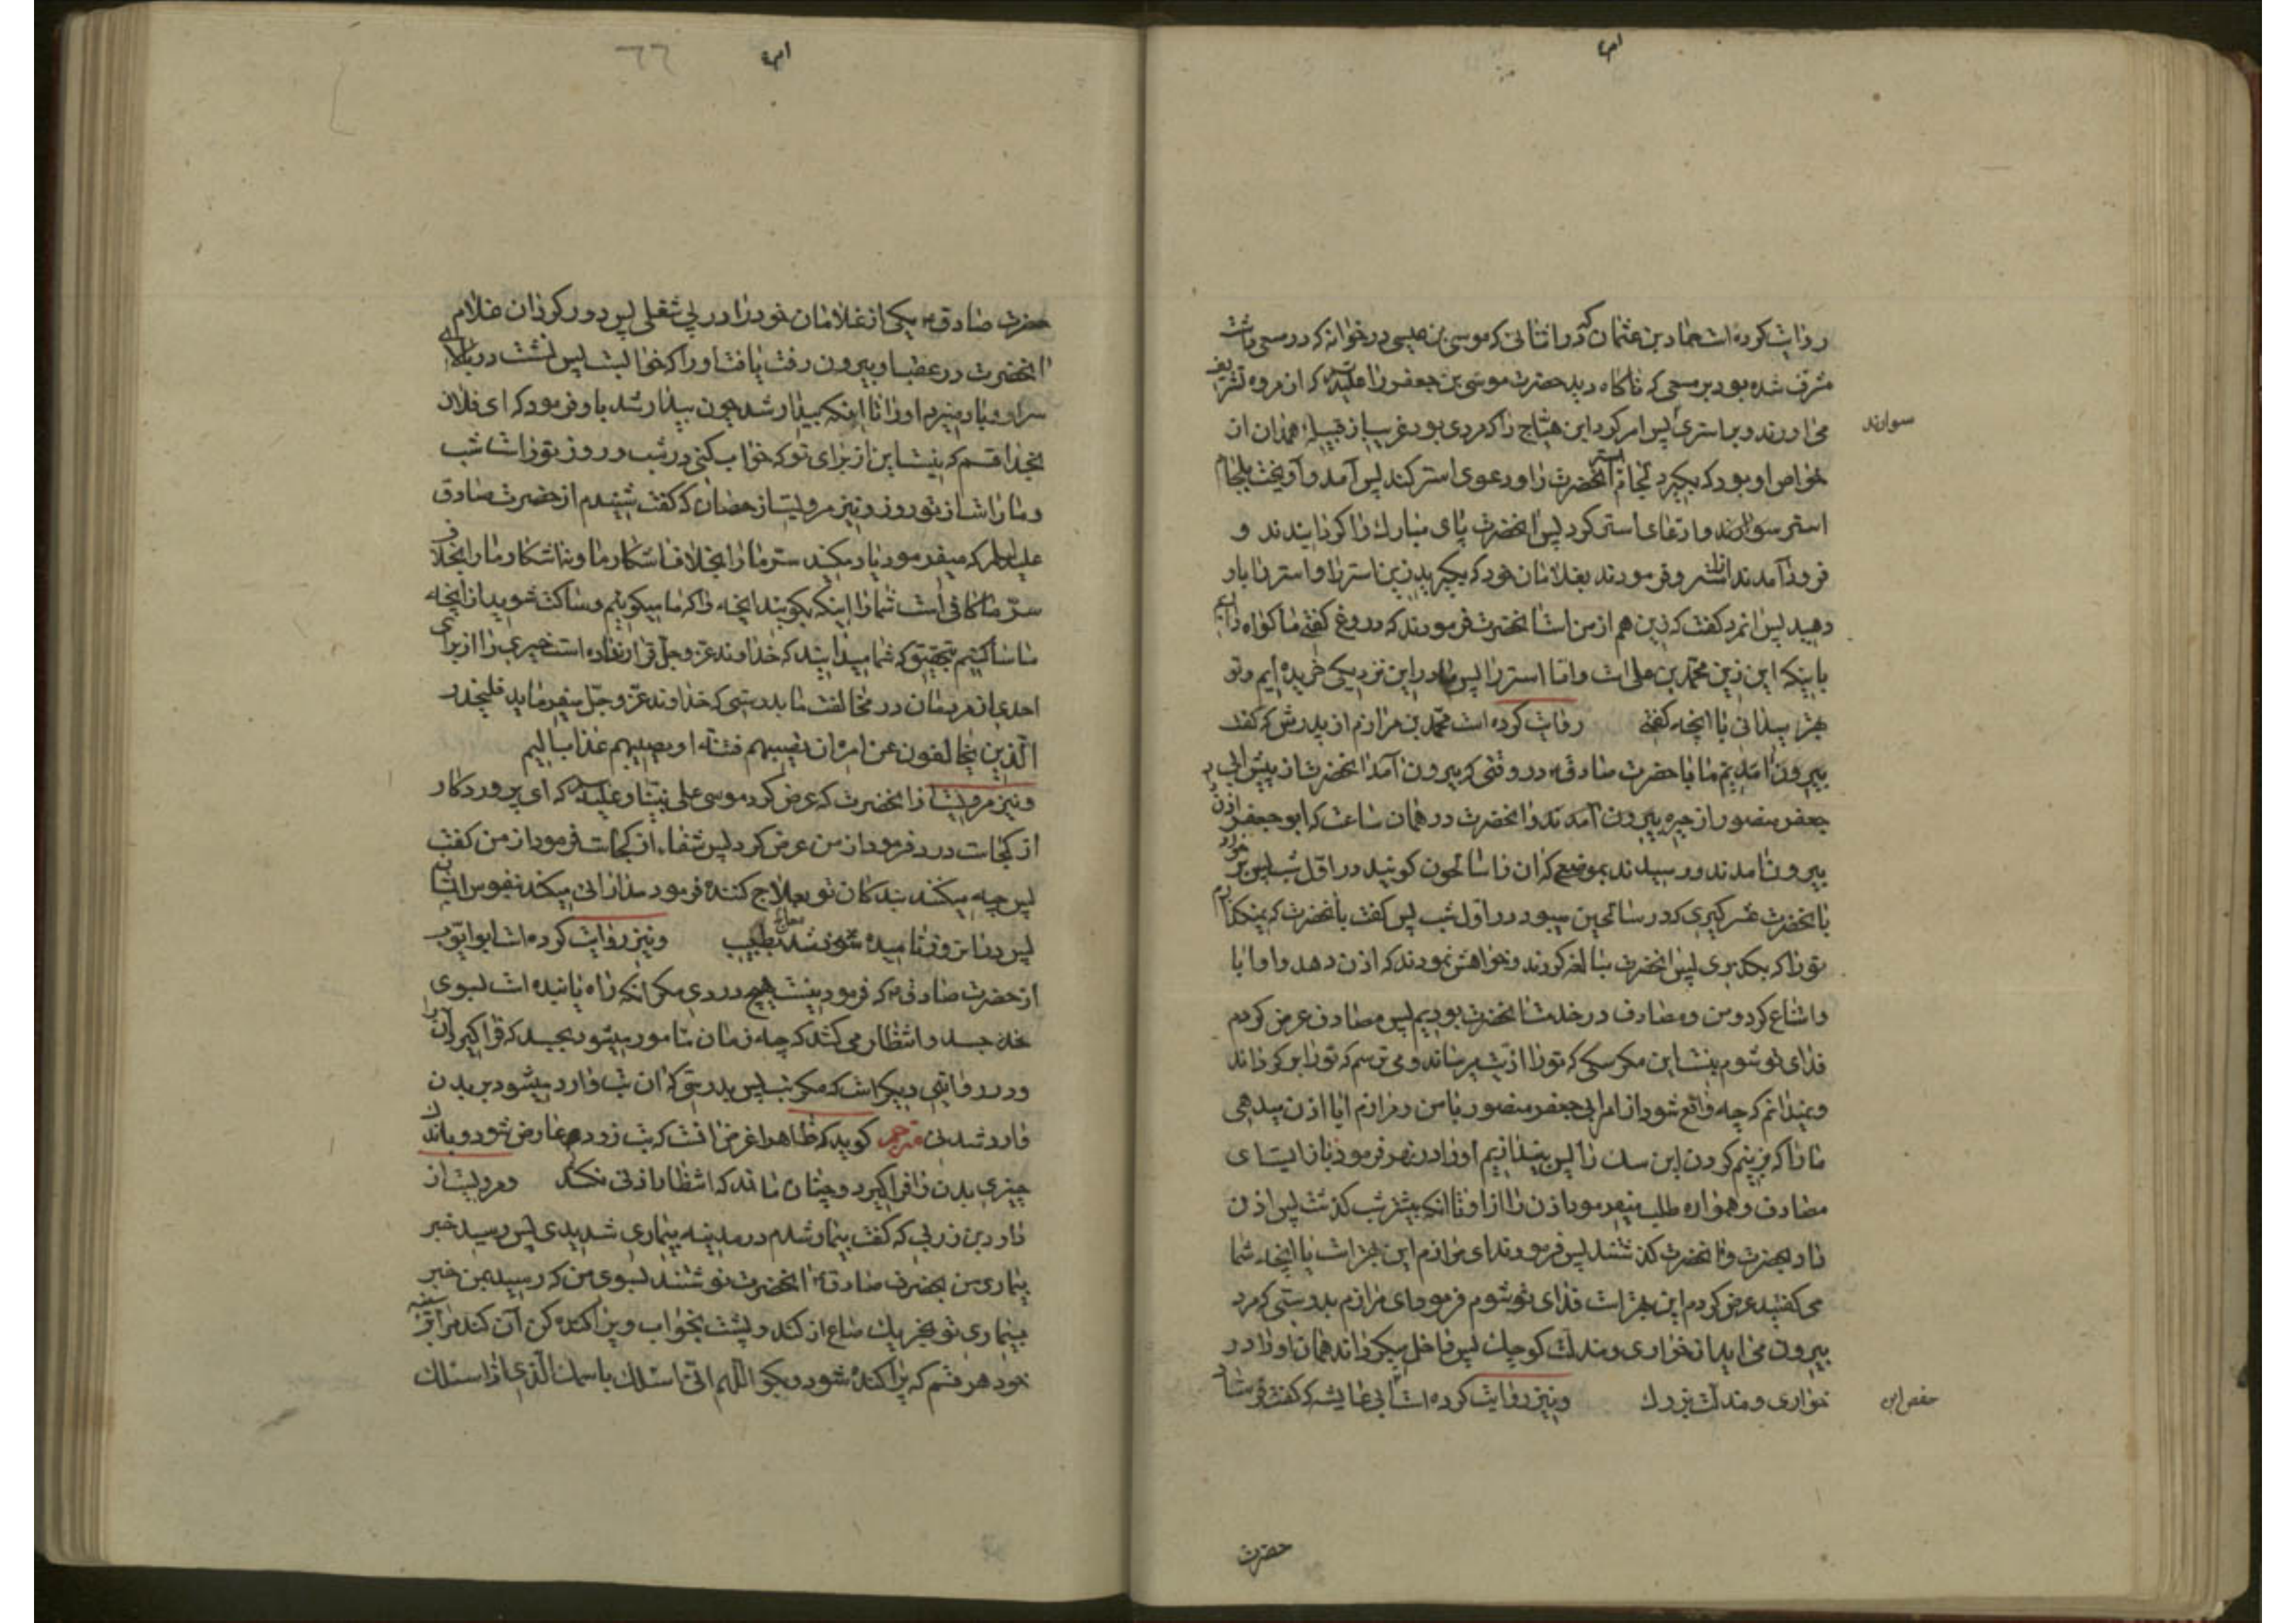 روایت کرده است حماد بن عثمان که در اثنائی که موسی بن عیسی در خوانه که در مسعی است
مشرف شده بود بر مسعی که ناگاه دید حضرت موسی بن جعفر را علیه که از مروه تشریف
می آورند و بر استری پس امر کرد ابن هیّاج را که مردی بود غریب از قبیله همدان از
سوارند
خواص او بود که بگیرد لجام استر آنحضرت را و دعوی استر کند پس آمد و آویخت بلجام
استر سوارند و ادعای استر کرد پس آنحضرت پای مبارک را گردانیدند و
فرود آمدند از استر و فرمودند بغلامان خود که بگیرید زین استر را و استر را باو
دهید پس آنمرد گفت که زین هم از من است آنحضرت فرمودند که دروغ گفتی ما گواه داریم
باینکه این زین محمد بن علی است و اما استر را پس ما در این نزدیکی خریده ایم و تو
بهتر میدانی با آنچه گفتی روایت کرده است محمد بن مرازم از پدرش که گفت
بیرون آمدیم ما با حضرت صادق در وقتی که بیرون آمد آنحضرت از پیش ابی
جعفر منصور از حیره بیرون آمدند و آنحضرت در همان ساعت که ابو جعفر اذن
بیرون آمدند و رسیدند بموضعی که آن را سالحون گویند در اول شب پس بر خورد
بآنحضرت عشر گیری که در سالحین میبود در اول شب پس گفت بآنحضرت که نمیگذارم
تو را که بگذری پس آنحضرت مبالغه کردند و خواهش نمودند که اذن دهد و او ابا
و امتناع کرد و من و مصادف در خدمت آنحضرت بودیم پس مصادف عرض کردم
فدای تو شوم نیست این مگر سگی که تو را اذیت میرساند و می ترسم که تو را برگرداند
و نمیدانم که چه واقع شود از امر ابی جعفر منصور با من و مرازم ایا اذن میدهی
ما را که بزنیم گردن این سک را پس بیندازیم او را در نهر فرمود باز ایست ای
مصادف و همواره طلب میفرمود اذن را از او تا آنکه بیشتر شب گذشت پس اذن
داد بحضرت و آنحضرت گذشتند پس فرمودند ای مرازم این بهتر است یا آنچه شما
می گفتید عرض کردم این بهتر است فدای تو شوم فرمود ای مرازم بدرستی که مرد
بیرون می آید از خواری و مذلت کوچک پس داخل میگرداند همان او را در
خواری و مذلت بزرگ و نیز روایت کرده است ابی عایشه که گفت فرستاد
حفص ابن
حضرت
حضرت صادق یکی از غلامان خود را در پی شغلی پس دور کرد آن غلام
آنحضرت در عقب او بیرون رفت یافت او را که خوابست پس نشست در بالای
سر او و باد میزدم او را تا اینکه بیدار شد چون بیدار شد باو فرمود که ای فلان
بخدا قسم که نیست این از برای تو که خواب کنی در شب و روز تو راست شب
و ما راست از تو روز و نیز مرویست از حضان که گفت شنیدم از حضرت صادق
علیه السلام که میفرمود یاد میکند ستر ما را بخلاف اشکار ما و نه اشکار ما را بخلاف
سرّ ما کافی است شما را اینکه بگویند آنچه را که ما میگوییم و ساکت شوید از آنچه
ما ساکتیم بتحقیق که شما میدانید که خداوند عز و جل قرار نداده است خیری را از برای
احدی از مردمان در مخالفت ما بدرستی که خداوند عزّ و جلّ میفرماید فلیحذر
الّذین یخالفون عن امره ان تصیبهم فتنة او یصیبهم عذاب الیم
و نیز مرویست از آنحضرت که عرض کرد موسی علی نبینا و علیه که ای پروردکار
از کجاست درد فرمود از من عرض کرد پس شفا از کجاست فرمود از من گفت
پس چه میکنند بندکان تو بعلاج کننده فرمود مدارائی میکند نفوس ایشان
پس در این روز نامیده شد معالج بطبیب و نیز روایت کرده است ابو ایّوب
از حضرت صادق که فرمود نیست هیچ دردی مگر آنکه راه یابنده است بسوی
جسد و انتظار می کشد که چه زمان مامور میشود بجسد که فرا گیرد آن را
و در روایتی دیگر است که مگر تب پس بدرستی که آن تب وارد میشود بر بدن
وارد شدنی مترجم گوید که ظاهرا غرض انست که تب زود عارض شود و باندک
چیزی بدن را فرا گیرد و چنان ماند که انتظار اذنی نکند و مرویست از
داود بن زربی که گفت بیمار شدم در مدینه بیماری شدیدی پس رسید خبر
بیماری من بحضرت صادق آنحضرت نوشتند بسوی من که رسید بمن خبر
بیماری تو بخر یک صاع از گندم و پشت بخواب و پراکنده کن آن کندم را بر سینه
خود هر قسم که پراکنده شود و بکو اللّهم انّی اسئلک باسمک الّذی اذا سئلک